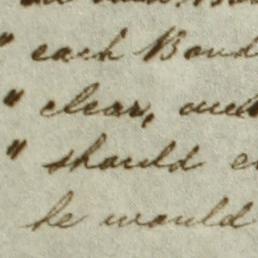 " each Bond
" clear, and
" should
he would